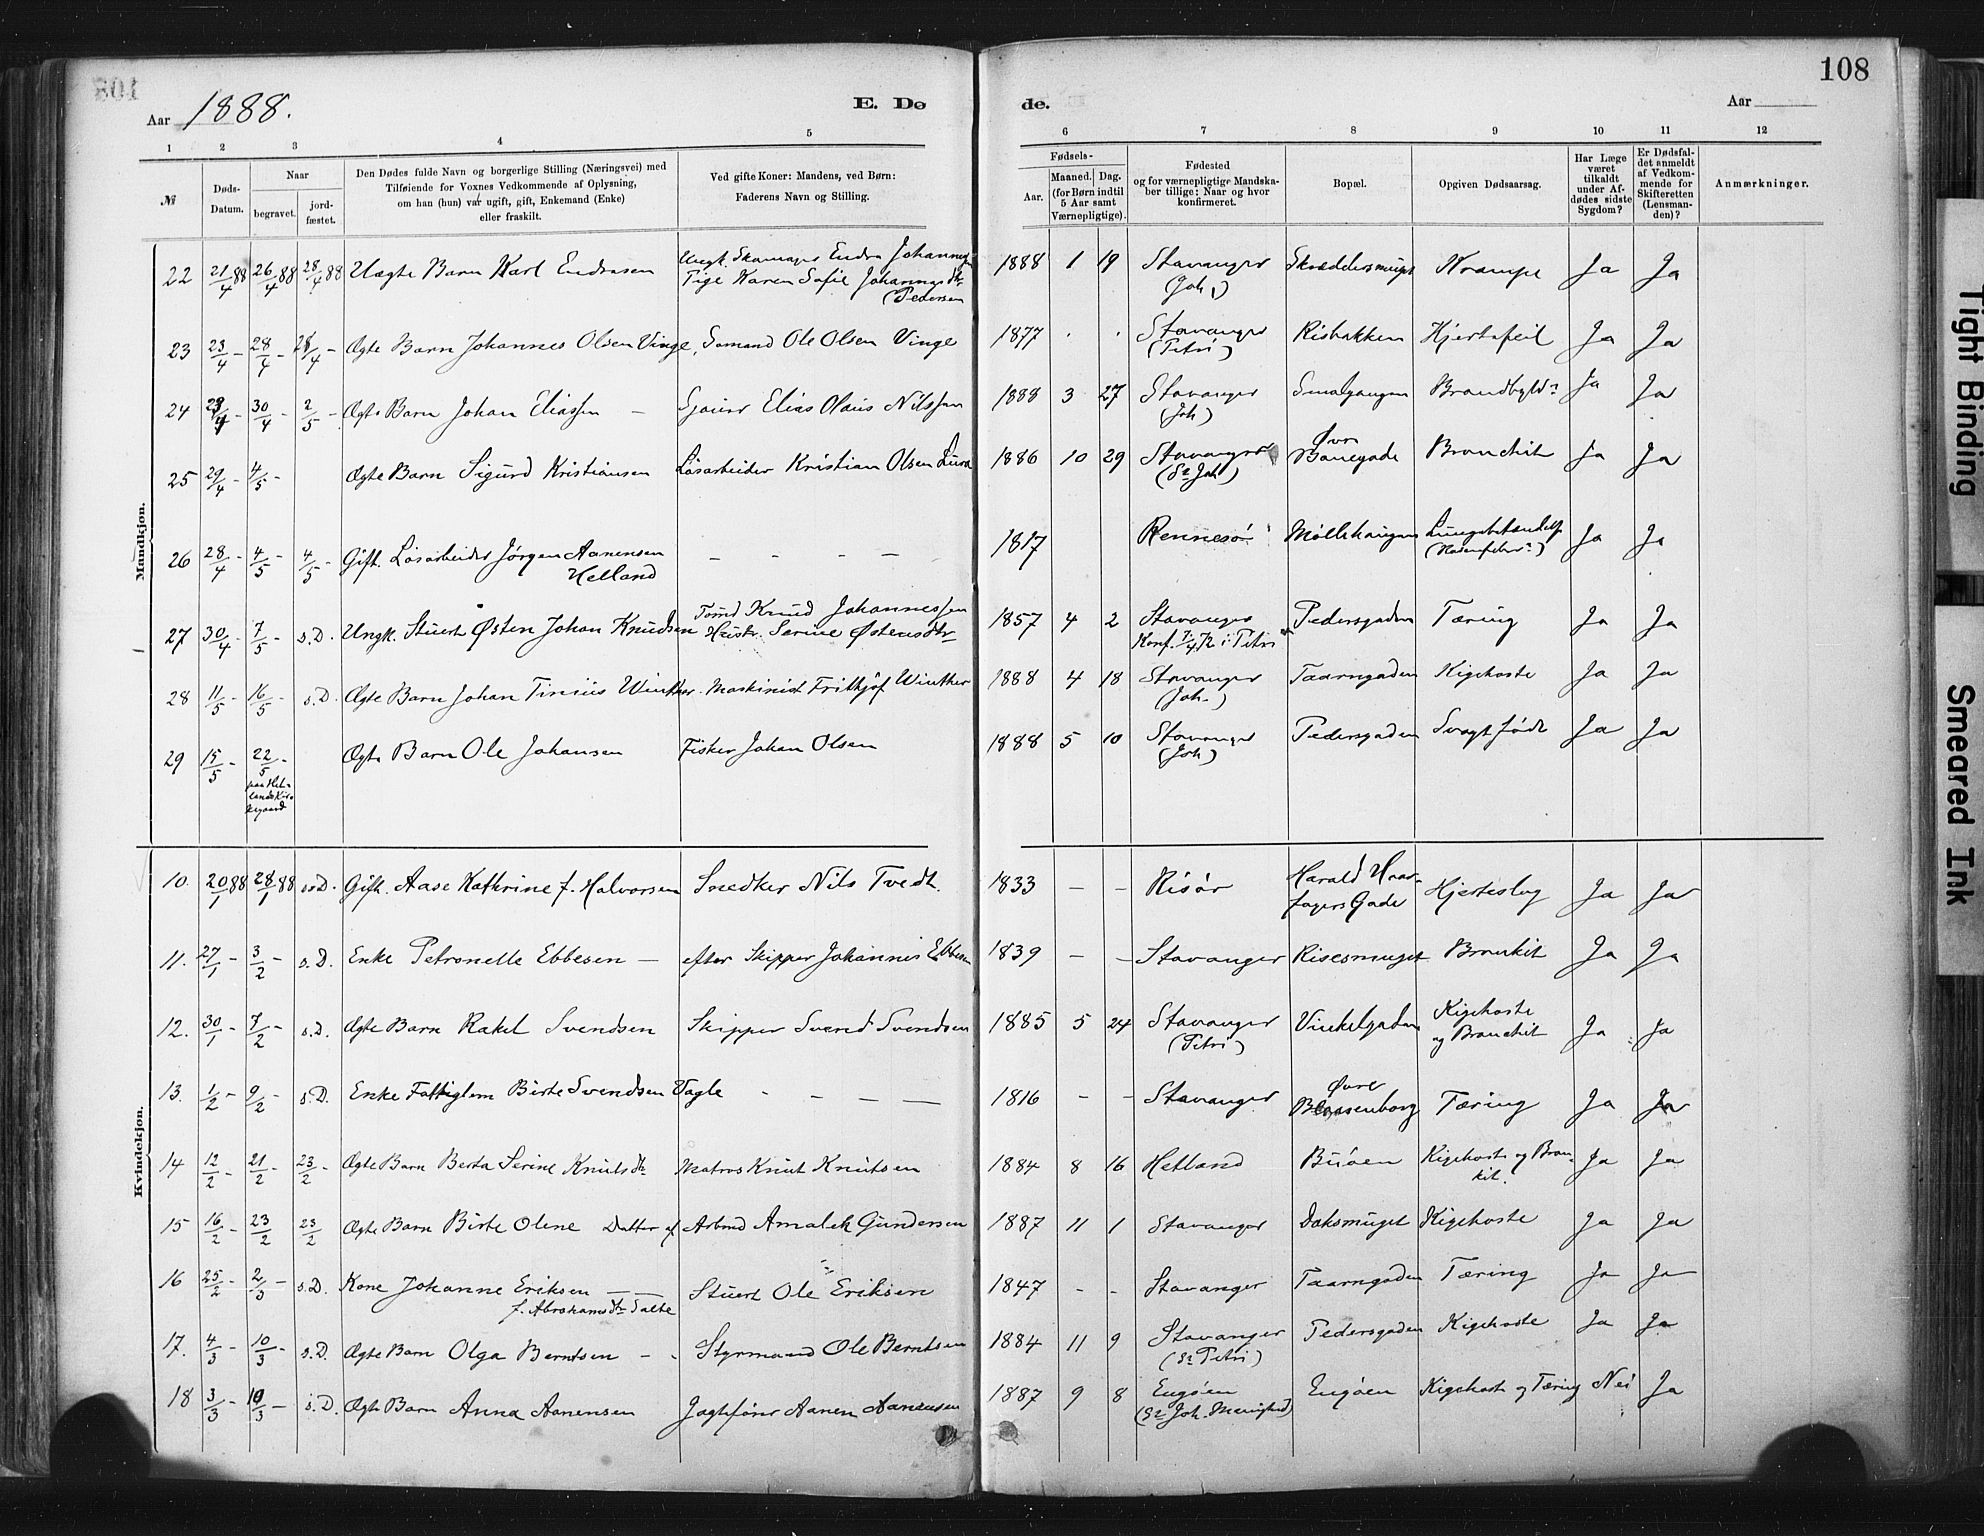 108
Aar 1888.
E. Dø
de.
Aar
1 2 3 4 5 6 7 8 9 10 11 12
№
Døds-Datum.
Naar
begravet.
jord-fæstet.
Den Dødes fulde Navn og borgerlige Stilling (Næringsvei) med
Tilføiende for Voxnes Vedkommende af Oplysning,
om han (hun) var ugift, gift, Enkemand (Enke)
eller fraskilt.
Ved gifte Koner: Mandens, ved Børn:
Faderens Navn og Stilling.
Fødsels-
Aar.
Maaned. Dag.
(for Børn indtil
5 Aar samt
Værnepligtige).
Fødested
og for værnepligtige Mandska-
ber tillige: Naar og hvor
konfirmeret.
Bopæl.
Opgiven Dødsaarsag.
Har Læge
været
tilkaldt
under Af-
dødes sidste
Sygdom?
Er Dødsfal-
det anmeldt
af Vedkom-
mende for
Skifteretten
(Lensman-
den)?
Anmærkninger.
Mandkjøn.
22 21/4 88 26/4 88 28/4 88 Uægte Barn Karl Endresen Ungk. Endre Johannesen 1888 1 19 Stavanger Krampe Ja Ja
Pige Karen Sofie Johannesdtr. (Joh.)
(Pedersen
23 23/4 - 28/4 - 28/4 - Ægte Barn Johannes Olsen Vinge, Sømand Ole Olsen Vinge 1877 . . Stavanger Risbakken Hjertefeil Ja Ja
(Petri)
24 30/4 - 2/5 - Ægte Barn Johan Eliassen — Sjauer Elias Olaus Nilssen 1888 3 27 Stavanger Smalgangen Ja Ja
(Joh)
25 29/4 - 4/5 - Ægte Barn Sigurd Kristiansen Løsarbeider Kristian Olsen 1886 10 29 Stavanger Øvre Banegade Bronchit Ja Ja
(St. Joh)
26 28/4 - 4/5 - 4/5 - Gift. Løsarbeider Jørgen Aanensen — — — — 1817 Rennesø Møllehaugen Lungebetændelse Ja Ja
Helland
27 30/4 - 7/5 - s.D. Ungk. Stuert Østen Johan Knudsen Tømd Knud Johannessen 1857 4 2 Stavanger Pedersgaden Tæring Ja Ja
Hustr. Serine Østensdtr Konf. i Petri
28 11/5 - 16/5 - s.D. Ægte Barn Johan Tinius Winther. Maskinist Frithjof Winther 1888 4 18 Stavanger Taarngaden Kighoste Ja Ja
(Joh.)
29 15/5 - 22/5 - Ægte Barn Ole Johansen Fisker Johan Olsen 1888 5 10 Stavanger Pedersgaden Svagt født Ja Ja
paa Het- (Joh)
lands Kir-
kegaard
Kvindekjøn.
10. 20/1 88 28/1 88 s.D. Gift. Aase Kathrine f. Halvorsen Snedker Nils Tvedt. 1833 — — Risør Harald Haar- Hjerteslag Ja Ja
fagers Gade
11. 27/1 - 3/2 - s.D. Enke Petronelle Ebbesen — efter Skipper Johannes Ebbesen 1839 — — Stavanger Risesmuget Bronkit Ja Ja
12. 30/1 - 7/2 - s.D. Ægte Barn Rakel Svendsen Skipper Svend Svendsen 1885 5 24 Stavanger Vinkelgaden Kighoste Ja Ja
(Petri) og Bronchit
13. 1/2 - 9/2 - s.D. Enke Fattiglem Birte Svendsen Vagle - - - — 1816 — — Stavanger Øvre Blaasenborg Tæring Ja Ja
14 12/2 - 21/2 - 23/2 - Ægte Barn Berta Serine Knutsdtr Matros Knut Knutsen 1884 8 16 Hetland Buøen Kighoste og Bron- Ja Ja
kit.
15 16/2 - 23/2 23/2 Ægte Barn Birte Oline Datter af Arbmd Amalek Gundersen 1887 11 1 Stavanger Doksmuget Kighoste Ja Ja
16 25/2 - 2/3 - s.D. Kone Johanne Eriksen — — Stuert Ole Eriksen 1847 - - Stavanger Taarngaden Tæring Ja Ja
f. Abrahamsdtr Salte
17. 4/3 - 10/3 - s.D. Ægte Barn Olga Berntsen - - Styrmand Ole Berntsen 1884 11 9 Stavanger Pedersgaden Kighoste Ja Ja
(St. Petri)
18 3/3 - 10/3 - s.D. Ægte Barn Anna Aanensen Jagtfører Aanen Aanensen 1887 9 8 Engøen Engøen Kighoste og Tæring Nei Ja
(St. Joh. Menighed)
Tight Binding
Smeared Ink